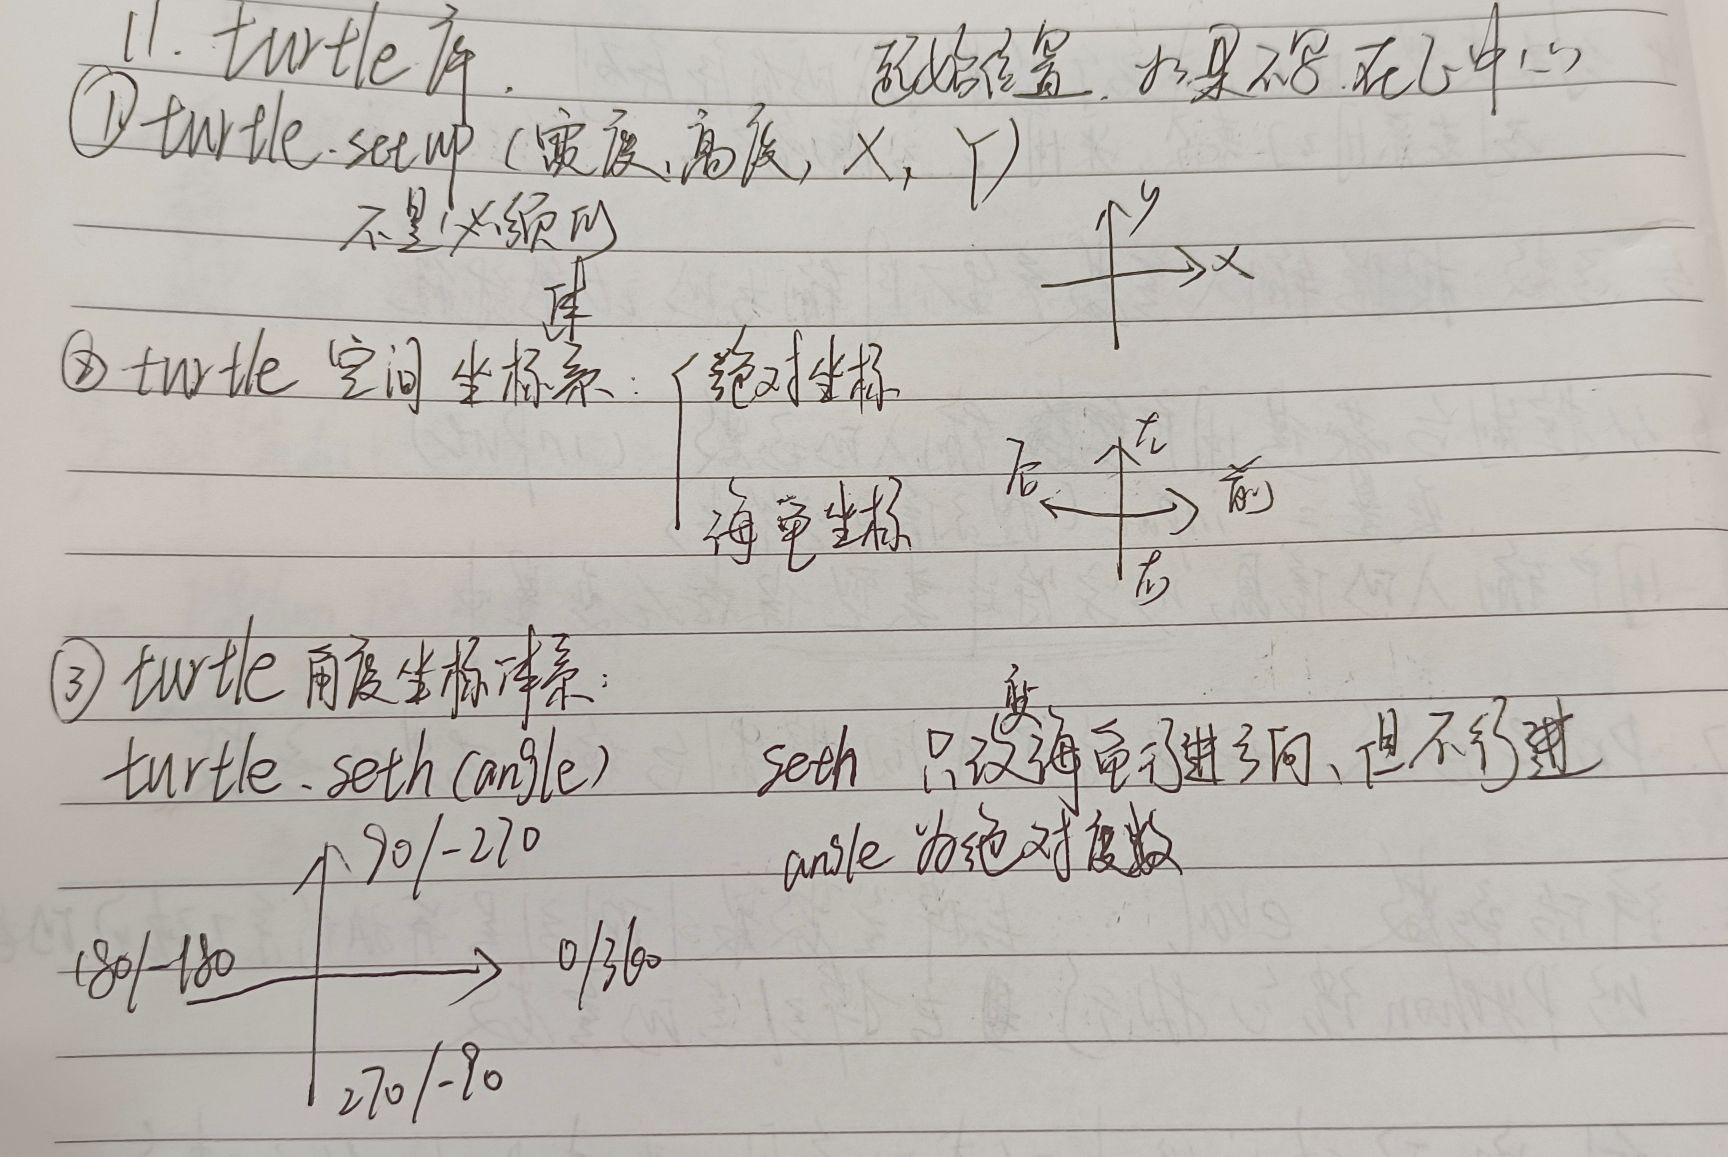 11. turtle库.
起始位置.如果不写.在正中心
① turtle.setup(宽度、高度, X, Y)
不是必须的
y
x
② turtle 空间坐标体系: 绝对坐标
左
后
前
海龟坐标
右
③ turtle角度坐标体系:
turtle.seth(angle)
seth 只改变海龟行进方向、但不行进
angle 为绝对度数
90/-270
180/-180
0/360
270/-90